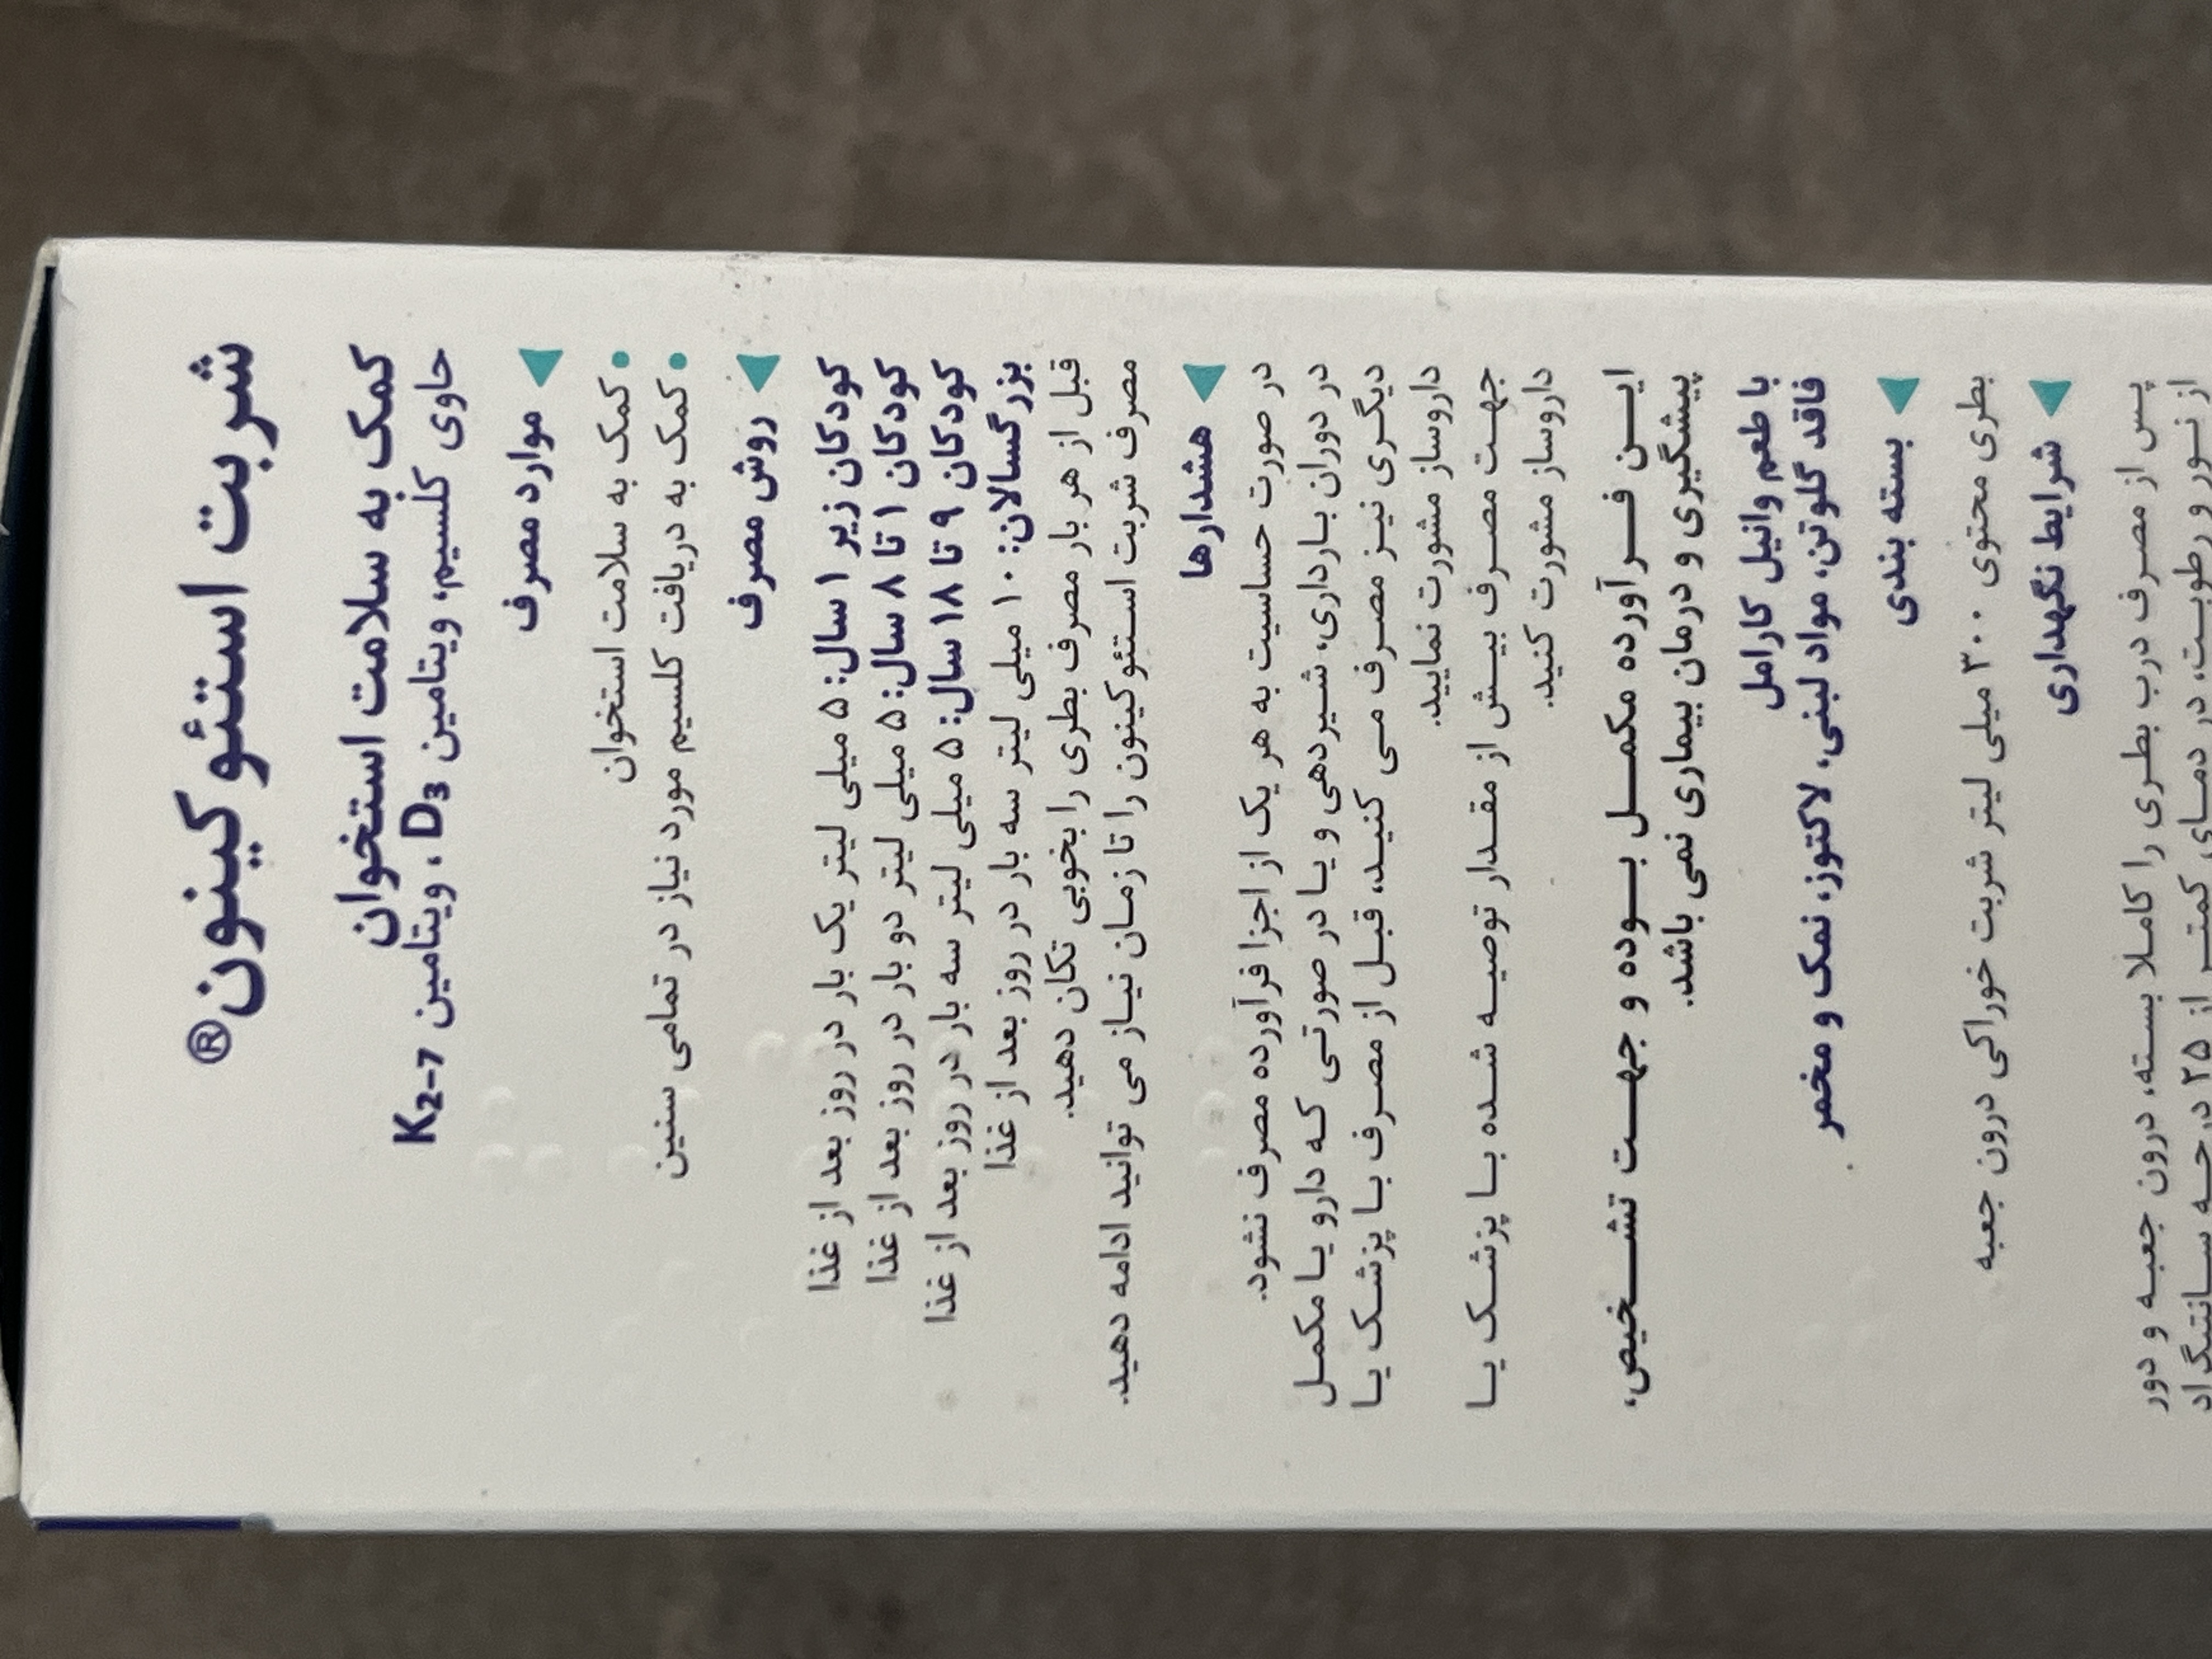 شربت استئوکینون®
کمک به سلامت استخوان
حاوی کلسیم، ویتامین D3 ، ویتامین K2-7
موارد مصرف
• کمک به سلامت استخوان
• کمک به دریافت کلسیم مورد نیاز در تمامی سنین
روش مصرف
کودکان زیر ۱ سال: ۵ میلی لیتر یک بار در روز بعد از غذا
کودکان ۱ تا ۸ سال: ۵ میلی لیتر دو بار در روز بعد از غذا
کودکان ۹ تا ۱۸ سال: ۵ میلی لیتر سه بار در روز بعد از غذا
بزرگسالان: ۱۰ میلی لیتر سه بار در روز بعد از غذا
قبل از هر بار مصرف بطری را بخوبی تکان دهید.
مصرف شربت استئوکینون را تا زمان نیاز می توانید ادامه دهید.
هشدارها
در صورت حساسیت به هر یک از اجزا فرآورده مصرف نشود.
در دوران بارداری، شیردهی و یا در صورتی که دارو یا مکمل
دیگری نیز مصرف می کنید، قبل از مصرف با پزشک یا
داروساز مشورت نمایید.
جهت مصرف بیش از مقدار توصیه شده با پزشک یا
داروساز مشورت کنید.
این فرآورده مکمل بوده و جهت تشخیص،
پیشگیری و درمان بیماری نمی باشد.
با طعم وانیل کارامل
فاقد گلوتن، مواد لبنی، لاکتوز، نمک و مخمر
بسته بندی
بطری محتوی ۳۰۰ میلی لیتر شربت خوراکی درون جعبه
شرایط نگهداری
پس از مصرف درب بطری را کاملا بسته، درون جعبه و دور
از نور و رطوبت، در دمای کمتر از ۲۵ درجه سانتیگراد